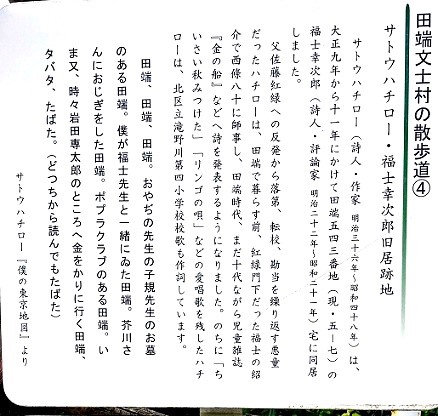 田端文士村の散歩道④
サトウハチロー・福士幸次郎旧居跡地
サトウハチロー（詩人・作家 明治三十六年～昭和四十八年）は、
大正九年から十一年にかけて田端五四三番地（現・五―七）の
福士幸次郎（詩人・評論家 明治二十二年～昭和二十一年）宅に同居
しました。
父佐藤紅緑への反発から落第、転校、勘当を繰り返す悪童
だったハチローは、田端で暮らす前、紅緑門下だった福士の紹
介で西條八十に師事し、田端時代、まだ十代ながら児童雑誌
『金の船』などへ詩を発表するようになりました。のちに「ち
いさい秋みつけた」「リンゴの唄」などの愛唱歌を残したハチ
ローは、北区立滝野川第四小学校校歌も作詞しています。
田端、田端、田端。おやぢの先生の子規先生のお墓
のある田端。僕が福士先生と一緒にゐた田端。芥川さ
んにおじぎをした田端。ポプラクラブのある田端。い
ま又、時々岩田専太郎のところへ金をかりに行く田端、
タバタ、たばた。（どっちから読んでもたばた）
サトウハチロー『僕の東京地図』より